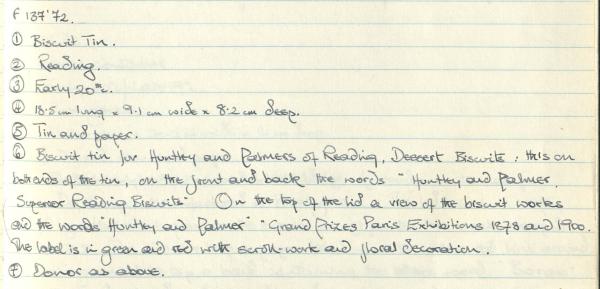 F 137'72.
① Biscuit Tin.
② Reading.
③ Early 20th c.
④ 18.5 cm long x 9.1 cm wide x 8.2 cm deep.
⑤ Tin and paper.
⑥ Biscuit tin for Huntley and Palmers of Reading, Dessert Biscuits; this on
both ends of the tin, on the front and back the words "Huntley and Palmer,
Superior Reading Biscuits" On the top of the lid a view of the biscuit works
and the words "Huntley and Palmer" "Grand Prizes Paris Exhibitions 1878 and 1900.
The label is in green and red with scroll-work and floral decoration.
⑦ Donor as above.